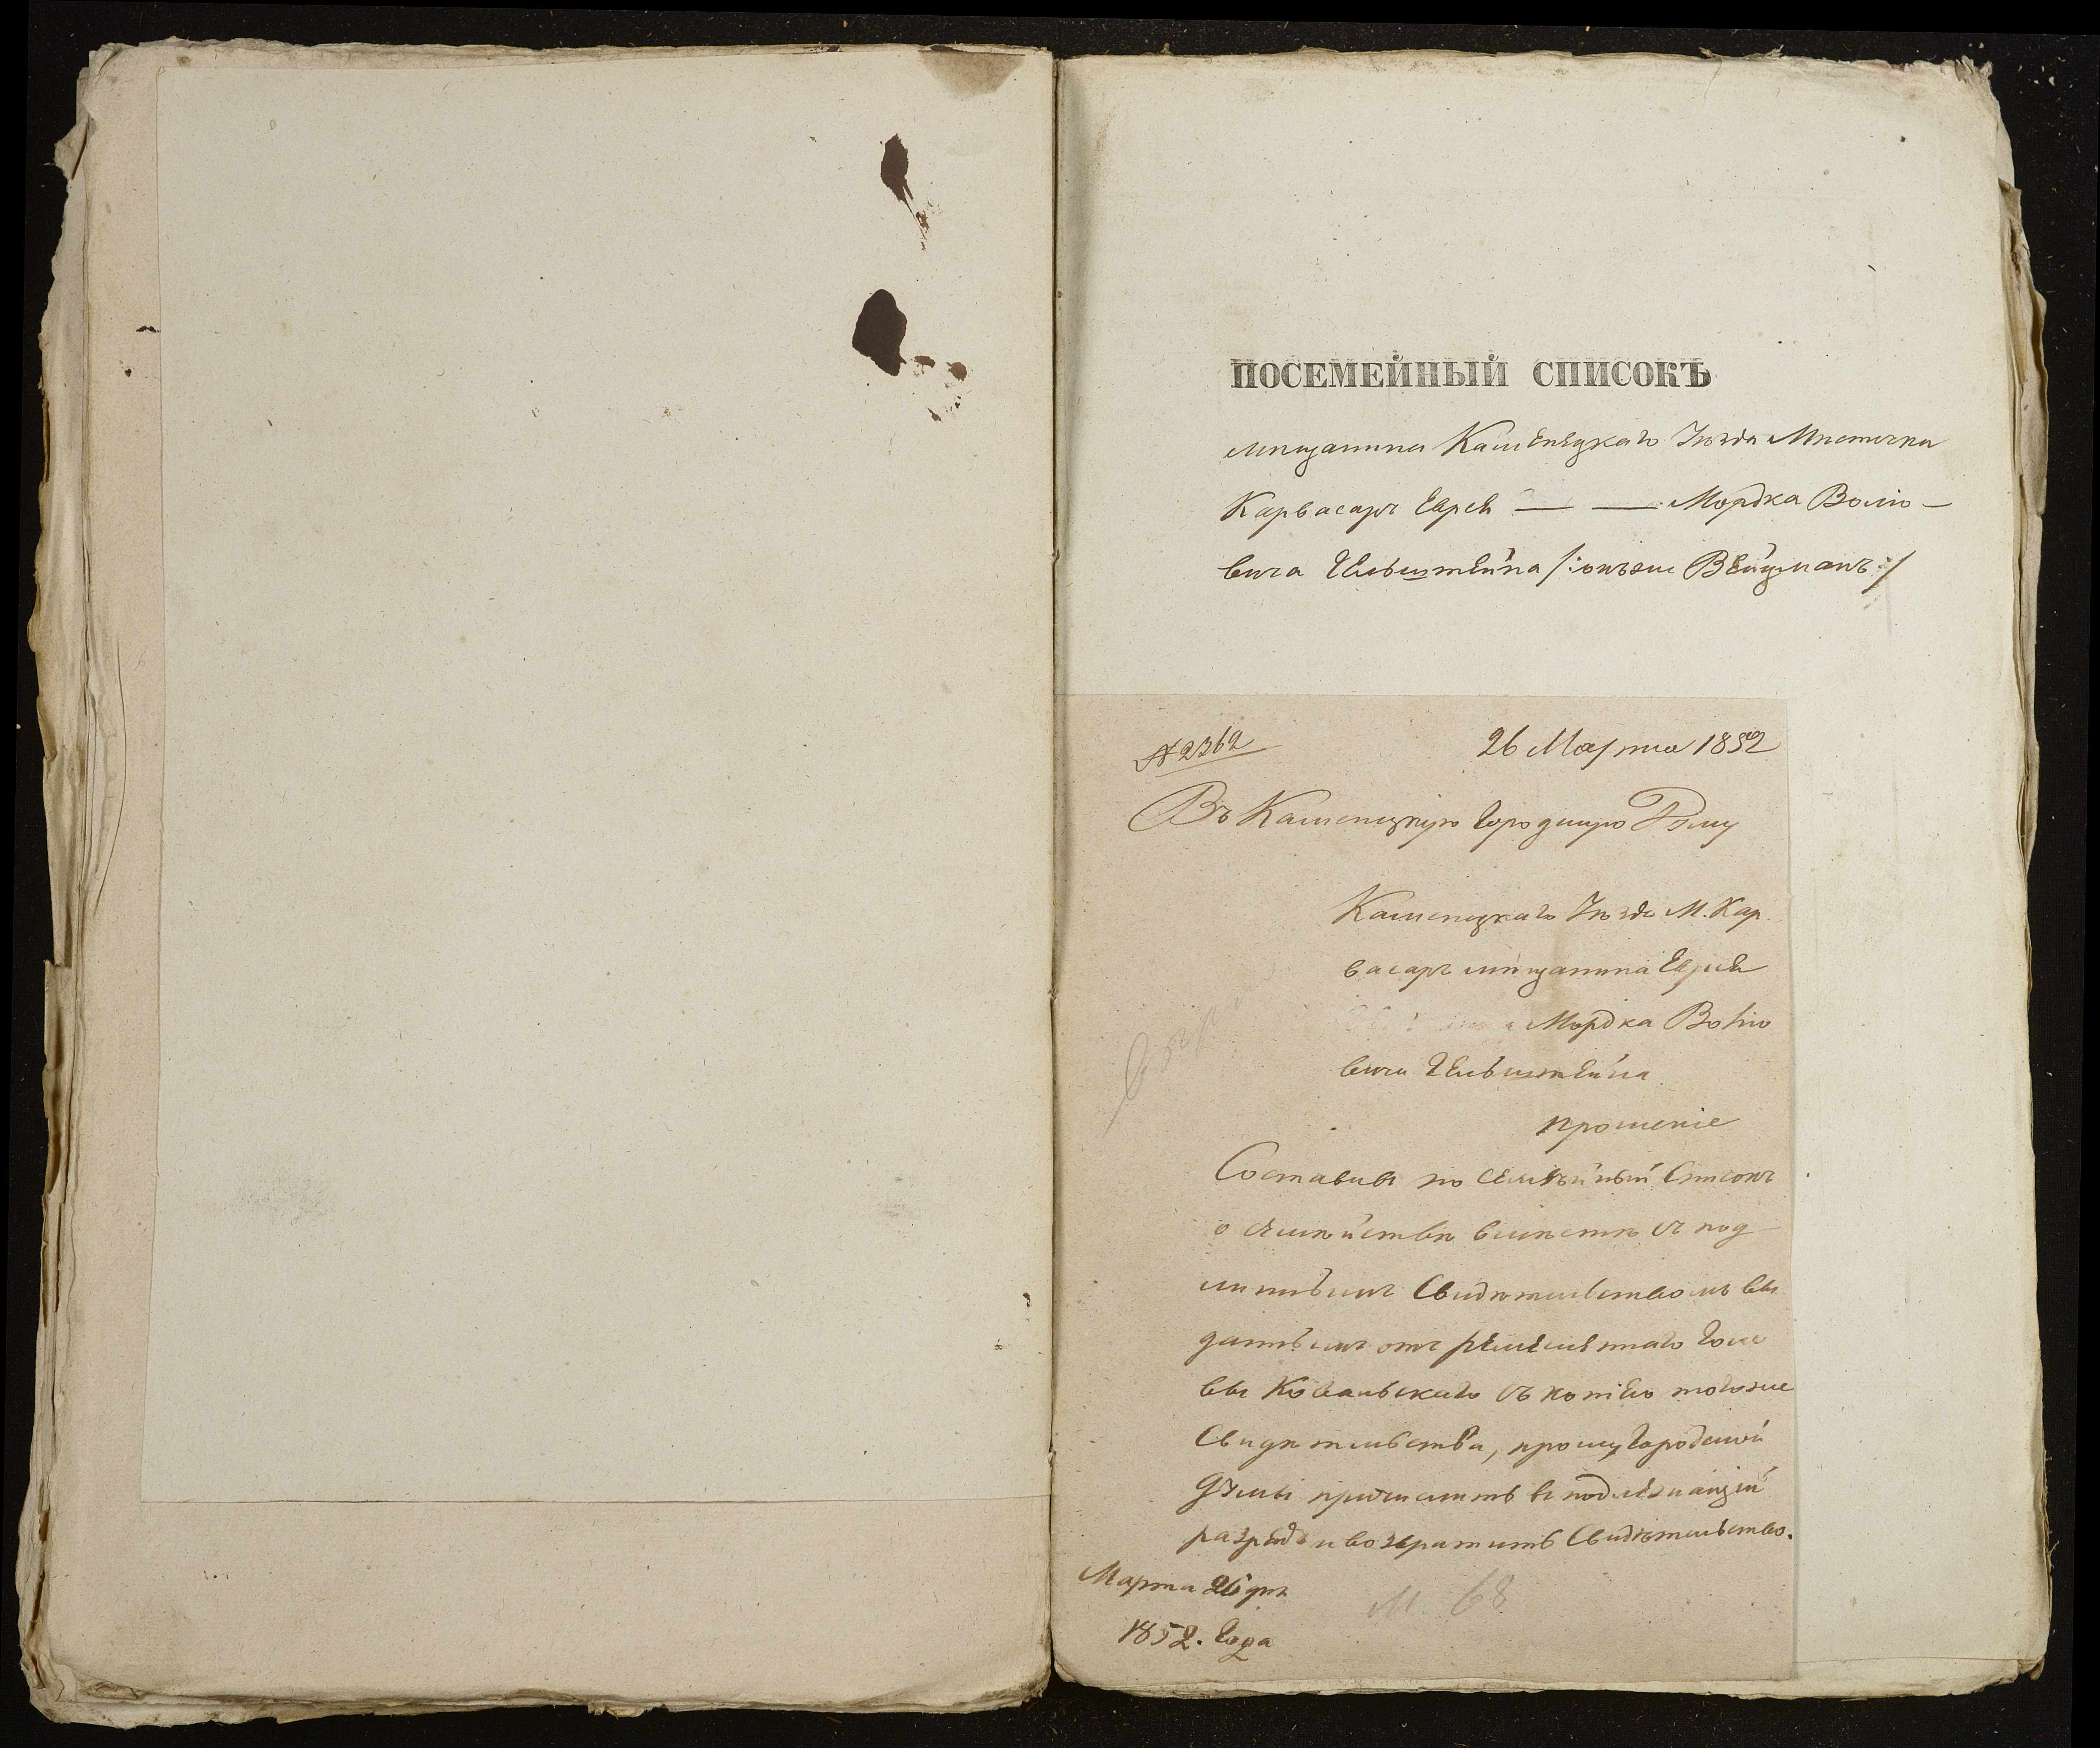 ПОСЕМЕЙНЫЙ СПИСОКЪ
мѣщанина Каменецкаго Уѣзда Мѣстечка
Карвасаръ Еврея — — Мордка Волю-
вича Гельштейна /:онъже Вейцманъ:/
№ 2362
26 Марта 1852
Въ Каменецкую Городскую Думу
Каменецкаго Уѣзда М. Кар
васаръ мѣщанина Еврея
Мордка Волю
вича Гельштейна
прошеніе
Составивъ по семейный Списокъ
о семѣйствѣ вмѣстѣ съ под
линымъ Свидѣтельствомъ вы
даннымъ отъ ремеслѣннаго Голо
вы Ковальскаго съ копіею тогоже
Свидѣтельства, прошу Городской
Думы причислить въ подлежащій
разрядъ и возвратить Свидѣтельство.
Марта 26 дня
1852. Года
М. 68